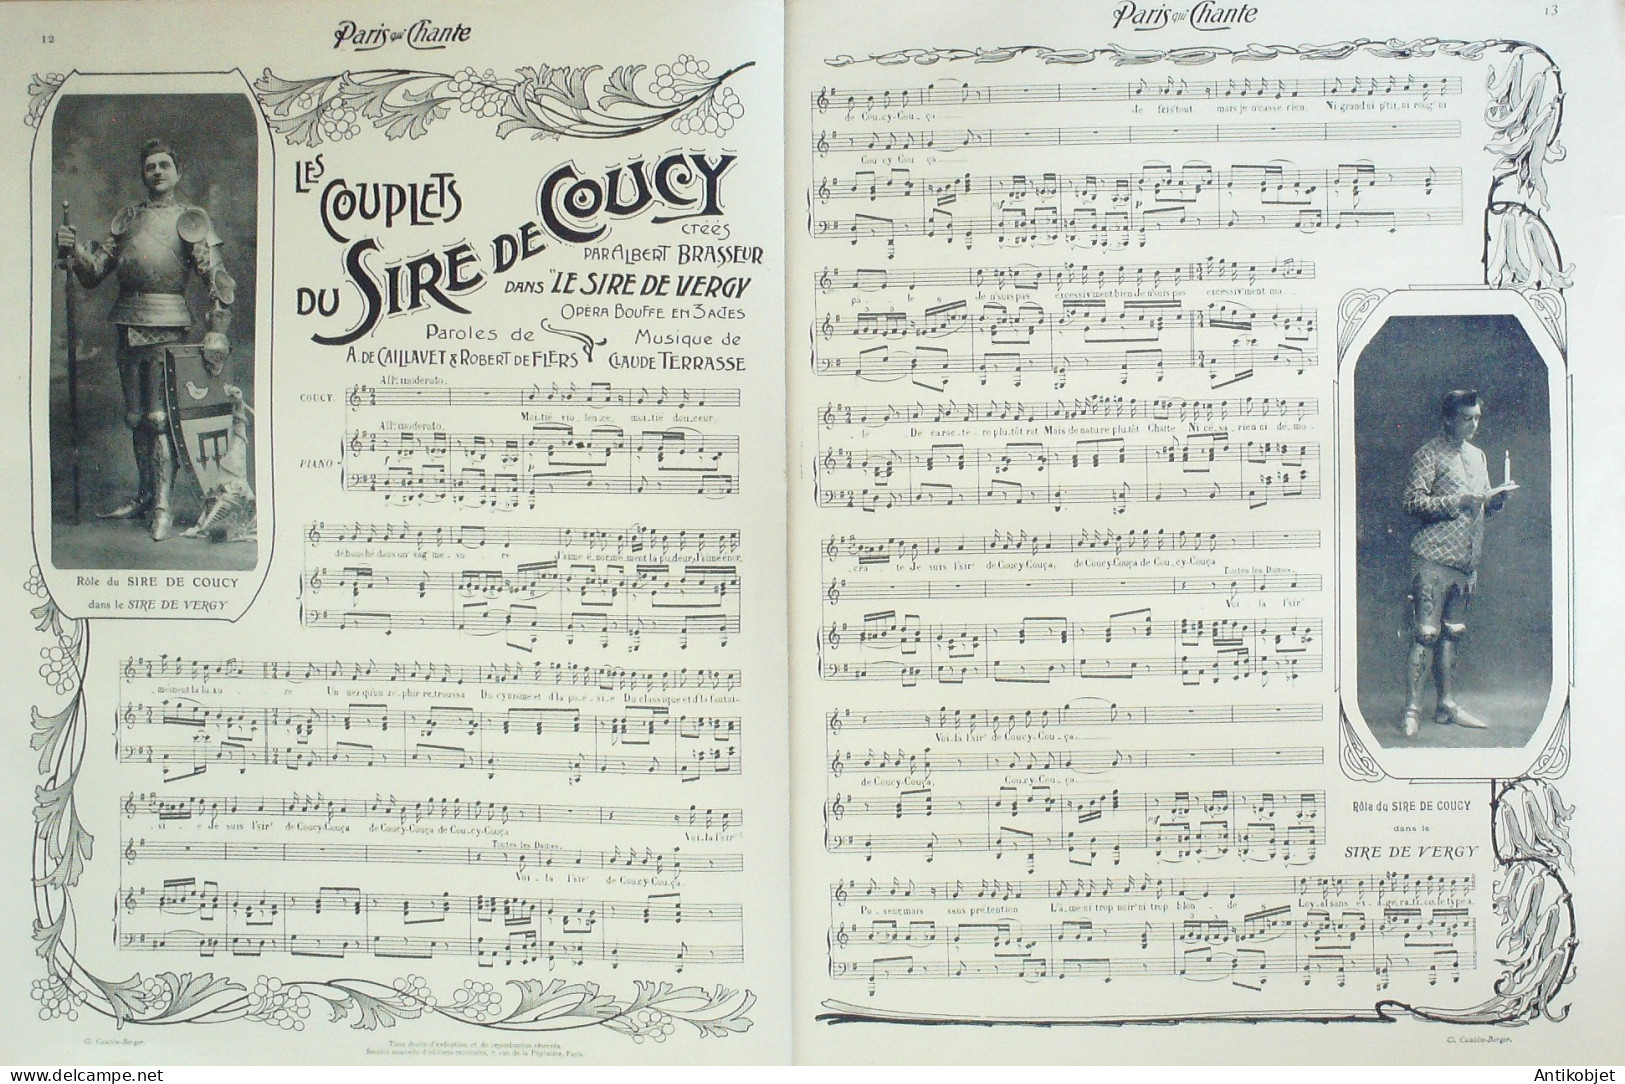 12
Paris qui Chante
LES COUPLETS
DU SIRE DE COUCY
CRÉÉS
PAR ALBERT BRASSEUR
DANS "LE SIRE DE VERGY
OPÉRA BOUFFE EN 3 ACTES
Paroles de
A. DE CAILLAVET & ROBERT DE FLERS
Musique de
CLAUDE TERRASSE
Rôle du SIRE DE COUCY
dans le SIRE DE VERGY
All° moderato.
COUCY.
Moi-tié vio-len-ce, moi-tié dou-ceur,
All° moderato.
PIANO
f
p
dé-bauché dans un' sag' me-su-re J'aime é-nor-mé-ment la pu-deur, J'aime énor-
mément la lu-xu-re Un nez qu'un zé-phir re-troussa Du cynisme et d'la po-é-si-e Du classique et d'la fantai-
si-e Je suis l'sir' de Coucy-Couça de Coucy-Couça de Cou-cy-Couça Voi-là l'sir'
Toutes les Dames.
Voi-là l'sir' de Cou-cy-Cou-ça.
Cl. Cautin-Berger.
Tous droits d'exécution et de reproduction réservés.
Société nouvelle d'éditions musicales, 7, rue de la Pépinière, Paris.
Paris qui Chante
13
de Cou-cy-Cou-ça Je fris' tout mais je n'casse rien, Ni grand ni p'tit, ni roug' ni
Cou-cy Cou-ça
mf
p
pâ-le Je n'suis pas excessiv'ment bien Je n'suis pas excessiv'ment ma-
le De carac-tè-re plu-tôt rat Mais de nature plutôt Chatte Ni cé-sa-rien ni dé-mo-
cra-te Je suis l'sir' de Coucy-Couça, de Coucy-Couça de Cou-cy-Couça
Toutes les Dames.
Voi-là l'sir'
Voi-là l'sir' de Coucy-Cou-ça
de Coucy-Couça, Coucy-Cou-ça.
mf
Po-seur, mais sans pré-tention L'â-me ni trop noir' ni trop blon-de Loy-al sans ex-a-gé-ra-ti-on, Je type à
Rôle du SIRE DE COUCY
dans le
SIRE DE VERGY
Cl. Cautin-Berger.
Antikobjet
delcampe.net